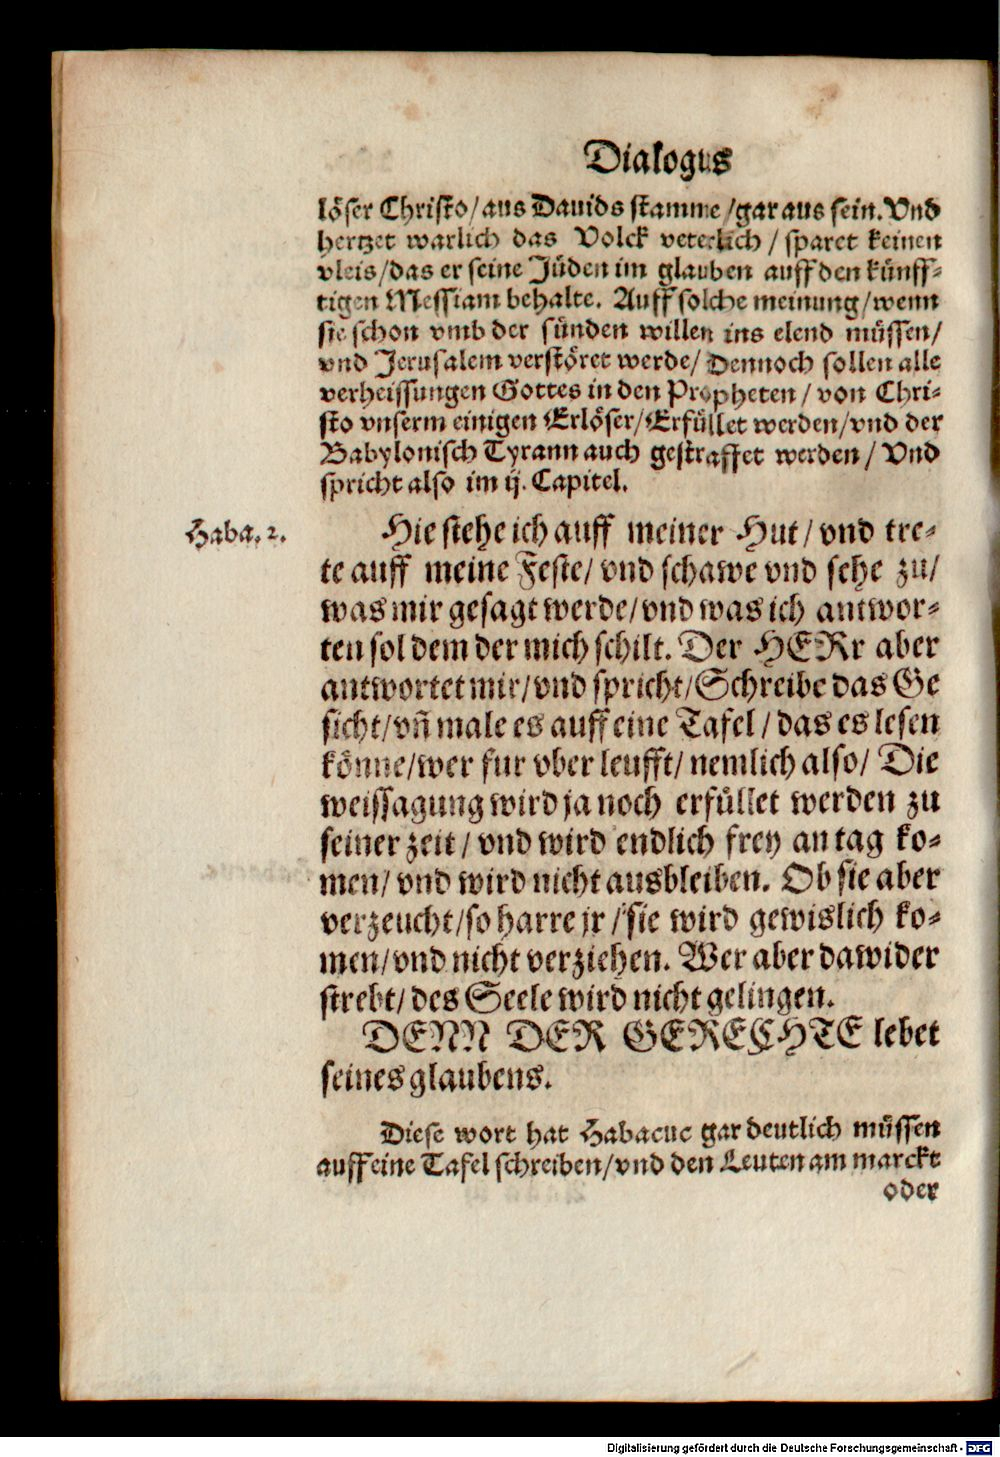 Dialogus
löser Christo/aus Dauids stamme/gar aus sein. Vnd
hertzet warlich das Volck veterlich/sparet keinen
vleis/das er seine Jüden im glauben auff den künff-
tigen Messiam behalte. Auff solche meinung/wenn
sie schon vmb der sünden willen ins elend müssen/
vnd Jerusalem verstöret werde/Dennoch sollen alle
verheissungen Gottes in den Propheten/von Chri-
sto vnserm einigen Erlöser/Erfüllet werden/vnd der
Babylonisch Tyrann auch gestraffet werden/Vnd
spricht also im ij. Capitel.
Haba. 2.
Hie stehe ich auff meiner Hut/vnd tre-
te auff meine Feste/vnd schawe vnd sehe zu/
was mir gesagt werde/vnd was ich antwor-
ten sol dem der mich schilt. Der HERr aber
antwortet mir/vnd spricht/Schreibe das Ge
sicht/vñ male es auff eine Tafel/das es lesen
könne/wer fur vber leufft/nemlich also/Die
weissagung wird ja noch erfüllet werden zu
seiner zeit/vnd wird endlich frey an tag ko-
men/vnd wird nicht ausbleiben. Ob sie aber
verzeucht/so harre jr/sie wird gewislich ko-
men/vnd nicht verziehen. Wer aber dawider
strebt/des Seele wird nicht gelingen.
DENN DER GERECHTE lebet
seines glaubens.
Diese wort hat Habacuc gar deutlich müssen
auff eine Tafel schreiben/vnd den Leuten am marckt
oder
Digitalisierung gefördert durch die Deutsche Forschungsgemeinschaft - DFG